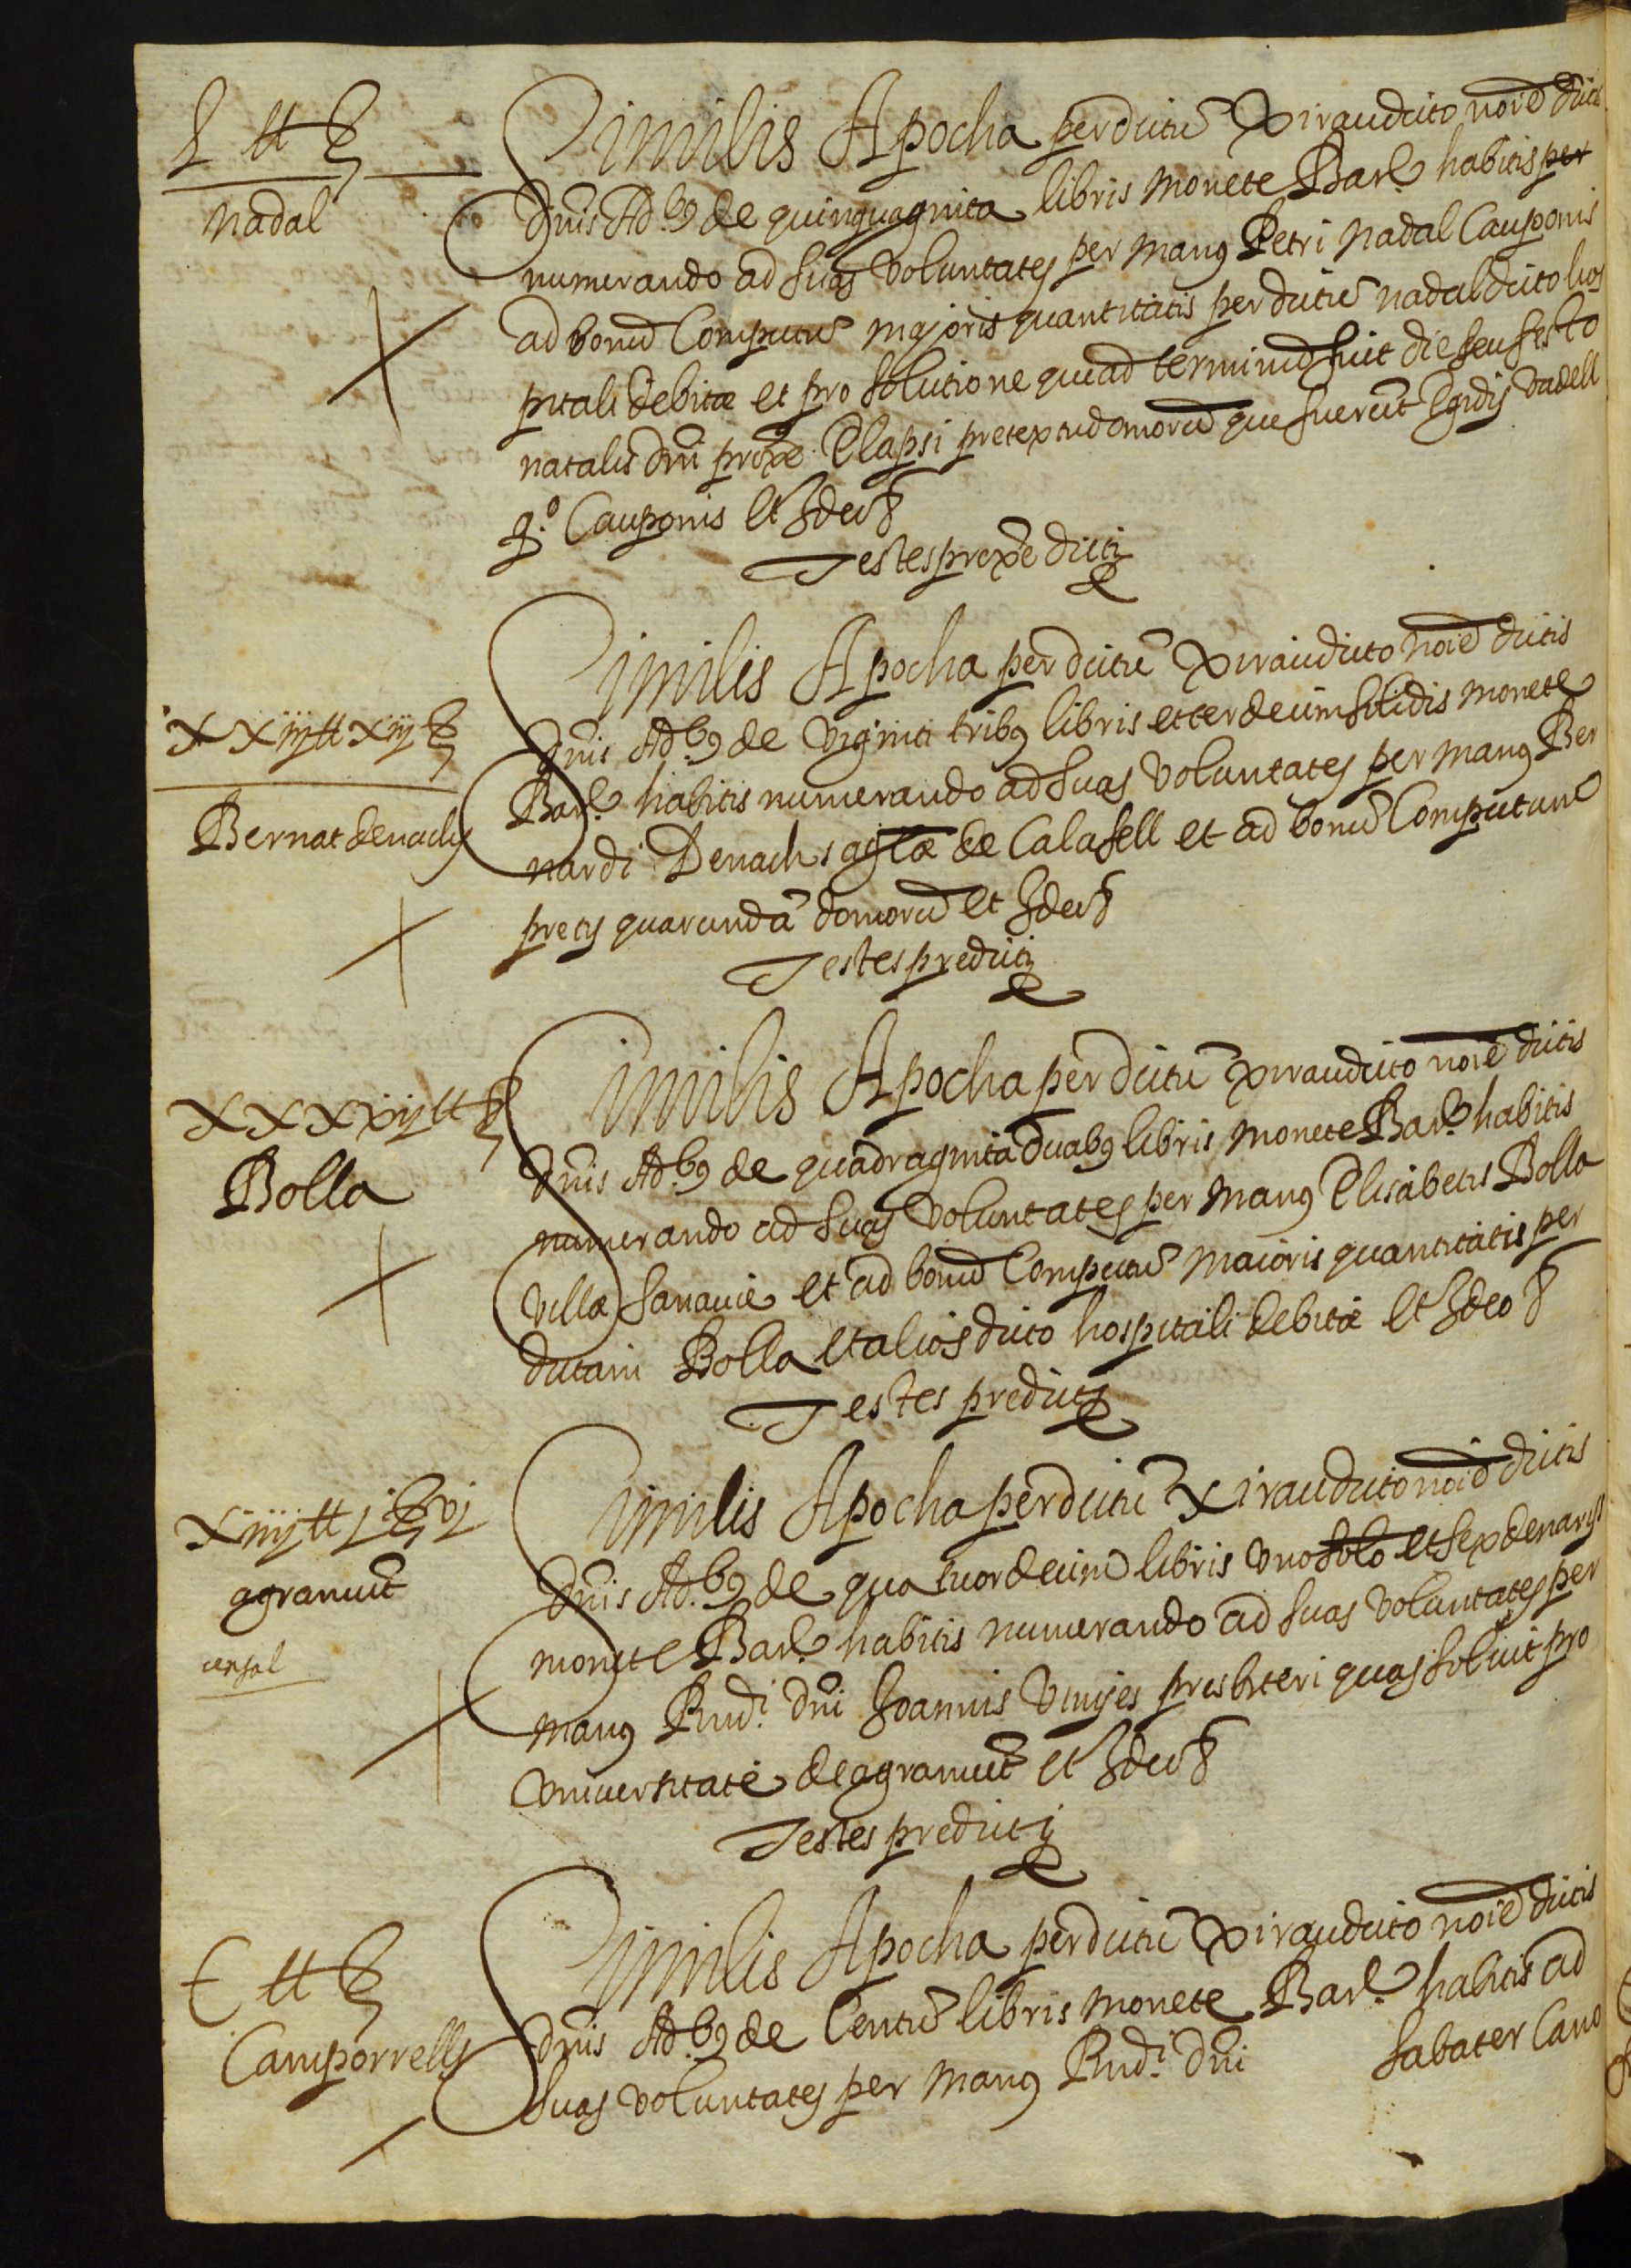 L tt ß
Nadal
Similis Apocha per dictũ Xirau dicto noiẽ dictis
dñis Ad.b9 de quinquaginta libris monete Barñ habitis per
numerando ad suas voluntates per man9 Petri Nadal Cauponis
ad bonũ Computũ majoris quantitatis per dictũ nadal dicto hos
pitali debitæ et pro solutione que ad terminũ fuit die seu festo
natalis dñi proxẽ elapsi pretextu domorũ que fuerũt Egidij Vadell
q.º Cauponis et Ideo &
Testes proxẽ dicti
XXiijtt Xiij ß
Bernat denachs
Similis Apocha per dictũ Xirau dicto noiẽ dictis
dñis Ad.b9 de viginti trib9 libris et terdecim solidis monete
Barñ habitis numerando ad suas voluntates per man9 Ber
nardi Denachs aglæ de Calafell et ad bonũ Computum
pretij quarundã domorũ et Ideo &
Testes predicti
XXXXijtt ß
Bolla
Similis Apocha per dictũ Xirau dicto noiẽ dictis
dñis Ad.b9 de quadraginta duab9 libris monete Barñ habitis
numerando ad suas voluntates per man9 Elisabetis Bolla
villæ et ad bonũ Computũ maioris quantitatis per
dictam Bolla et alios dicto hospitali debitæ et Ideo &
Testes predicti
Xiiijtt j ß vj
agramũt
censal
Similis Apocha per dictũ Xirau dicto noiẽ dictis
dñis Ad.b9 de quatuordecim libris vno solo et sex denarijs
monete Barñ habitis numerando ad suas voluntates per
man9 Rndi. dñi Joannis Vinyes presbiteri quas soluit pro
Vniuersitate de agramũt et Ideo &
Testes predicti
C tt ß
Camporrells
Similis Apocha per dictũ Xirau dicto noiẽ dictis
dñis Ad.b9 de Centũ libris monete Barñ habitis ad
suas voluntates per man9 Rndi. dñi Sabater Cano